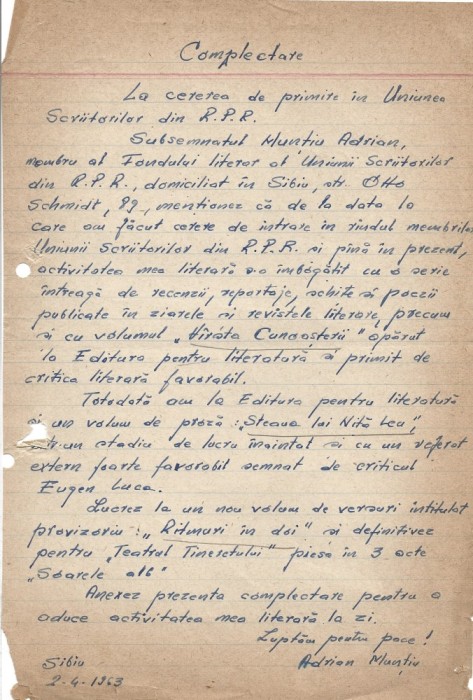 Complectare
La cererea de primire în Uniunea
Scriitorilor din R.P.R.
Subsemnatul Munțiu Adrian,
membru al Fondului literar al Uniunii Scriitorilor
din R.P.R., domiciliat în Sibiu, str. Otto
Schmidt, 89, menționez că de la data la
care am făcut cerere de intrare în rîndul membrilor
Uniunii Scriitorilor din R.P.R. și pînă în prezent,
activitatea mea literară s-a îmbogățit cu o serie
întreagă de recenzii, reportaje, schite și poezii
publicate în ziarele și revistele literare, precum
și cu volumul „Vîrsta Cunoașterii" apărut
la Editura pentru literatură și primit de
critica literară favorabil.
Totodată am la Editura pentru literatură
și un volum de proză: „Steaua lui Niță Leu",
într-un stadiu de lucru înaintat și cu un referat
extern foarte favorabil semnat de criticul
Eugen Luca.
Lucrez la un nou volum de versuri intitulat
provizoriu: „Ritmuri în doi" și definitivez
pentru „Teatrul Tineretului" piesa în 3 acte
„Soarele alb"
Anexez prezenta complectare pentru a
aduce activitatea mea literară la zi.
Luptăm pentru pace!
Sibiu Adrian Munțiu
2-4-1963